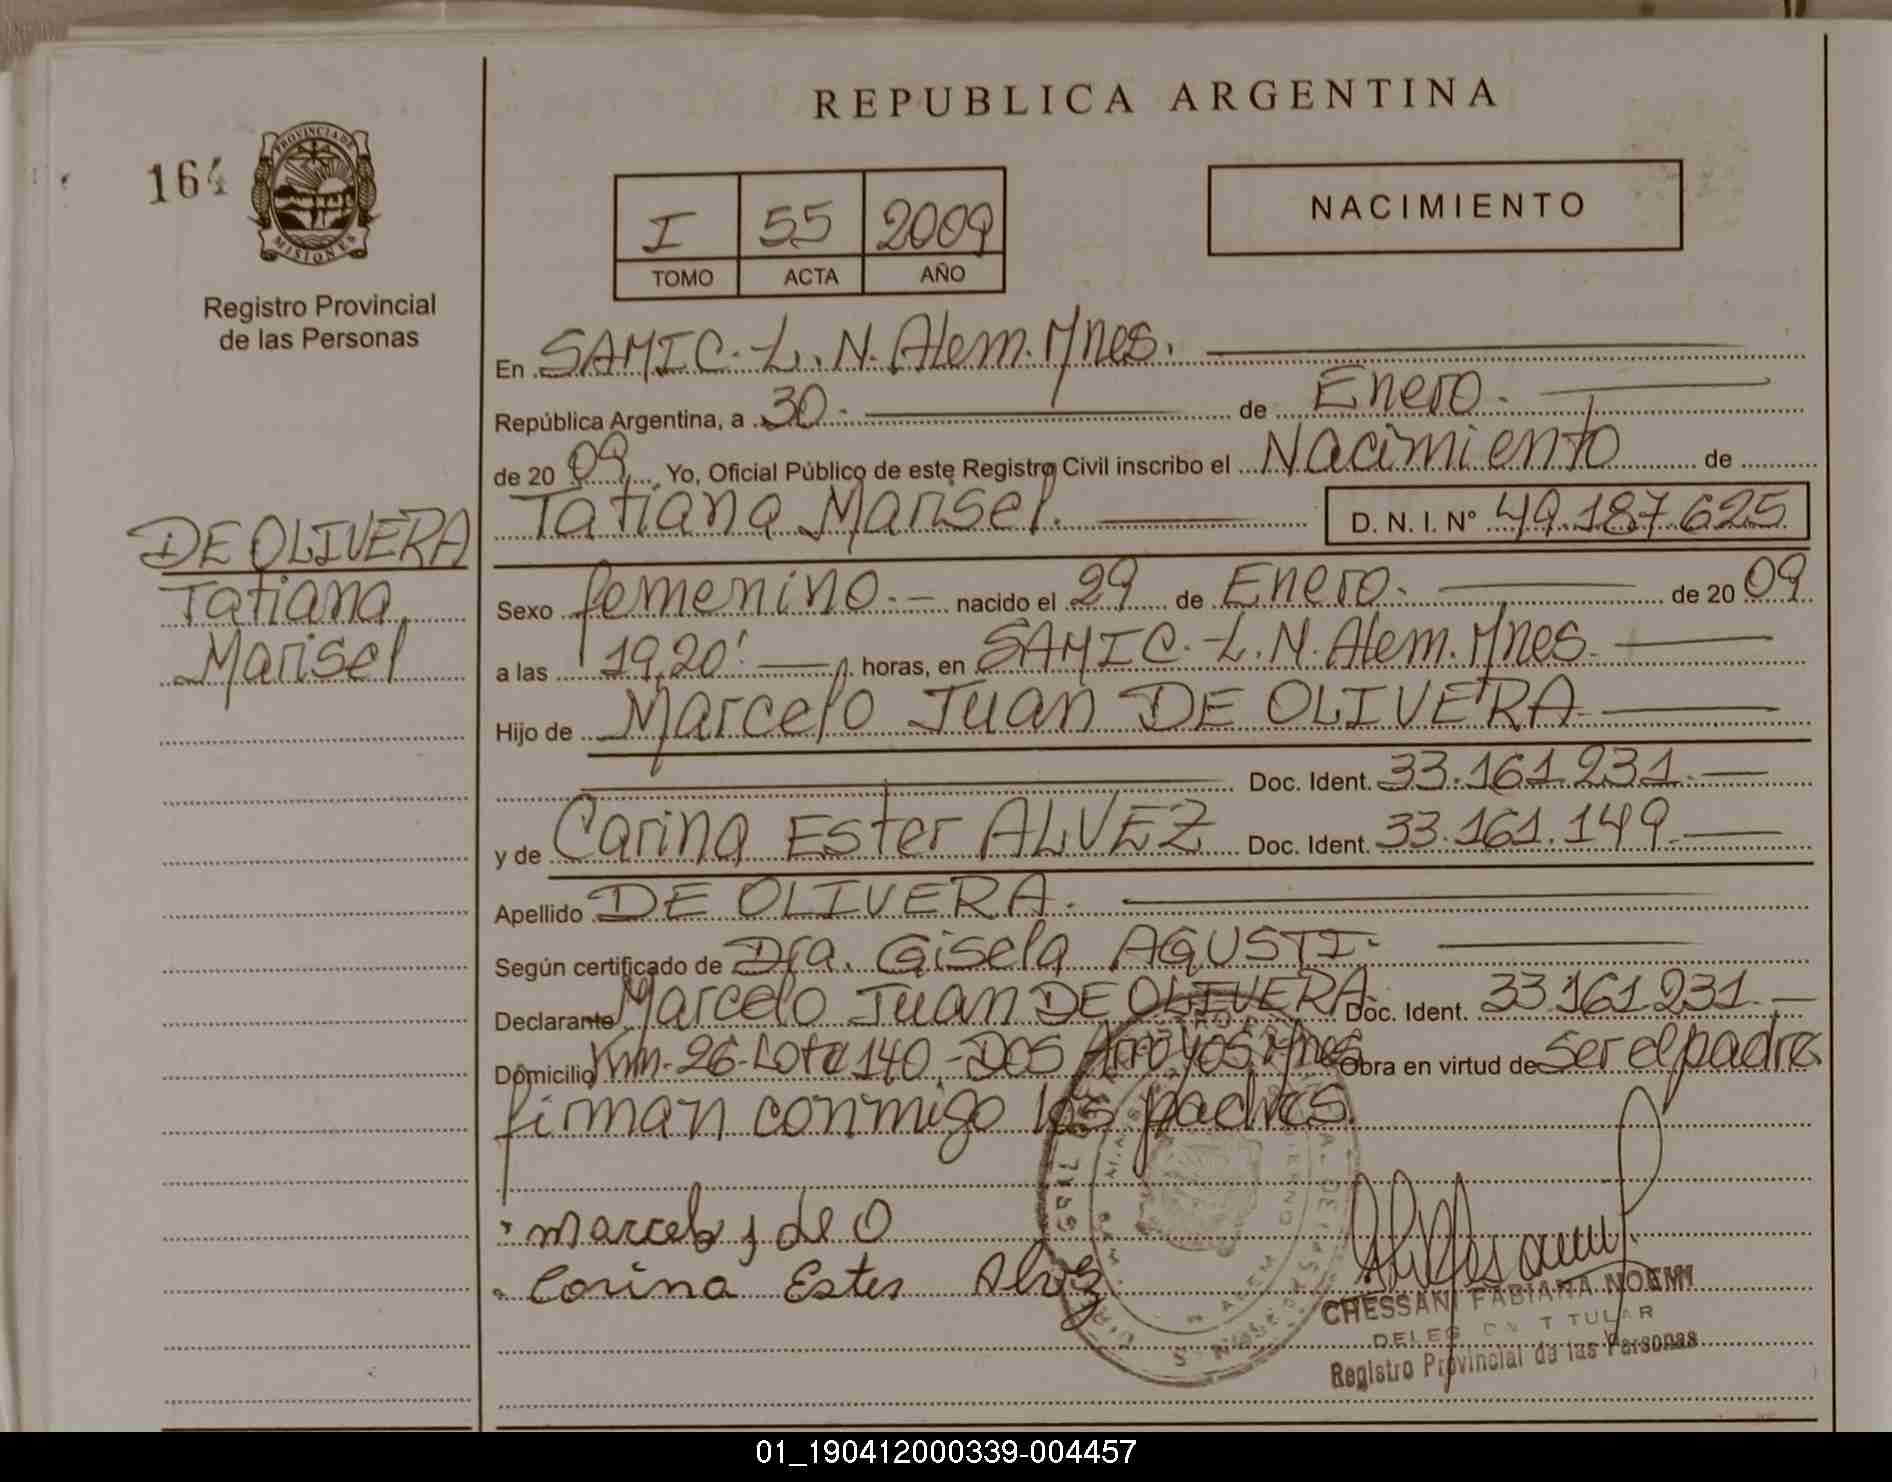 REPUBLICA ARGENTINA
164
PROVINCIA DE
MISIONES
Registro Provincial
de las Personas
I 55 2009
TOMO ACTA AÑO
NACIMIENTO
En SAMIC. L. N. Alem. Mnes.
República Argentina, a 30 de Enero.
de 20 09 Yo, Oficial Público de este Registro Civil inscribo el Nacimiento de
Tatiana Marisel. D. N. I. N° 49.187.625
DE OLIVERA
Tatiana
Marisel
Sexo femenino. nacido el 29 de Enero. de 20 09
a las 19,20' horas, en SAMIC. L. N. Alem. Mnes.
Hijo de Marcelo Juan DE OLIVERA
Doc. Ident. 33.161.231.
y de Carina Ester ALVEZ Doc. Ident. 33.161.149.
Apellido DE OLIVERA.
Según certificado de Dra. Gisela AGUSTI.
Declarante Marcelo Juan DE OLIVERA Doc. Ident. 33.161.231.
Domicilio Km. 26-Lote 140.-Dos Arroyos, Mnes Obra en virtud de Ser el padre
firman conmigo los padres.
Marcelo J de O
Corina Ester Alvez
CHESSANI FABIANA NOEMI
Registro Provincial de las Personas
01_190412000339-004457